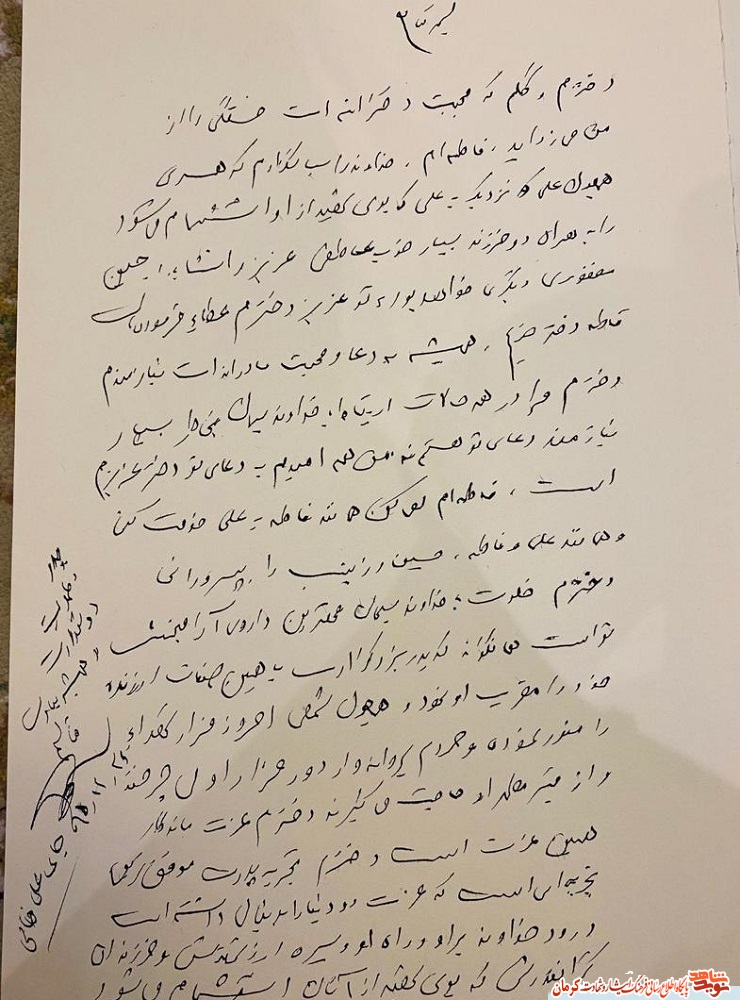 بسمه تعالی
دخترم و گلم که محبت دخترانه ات خستگی را از
من می زداید، فاطمه ام، خداوند را سپاسگزارم که همسری
همچون علی که نزدیک به علی که بوی شهید از او استشمام می شود
را به همراه دو فرزند بسیار خوب عاطفی عزیز و انشاءا... حسین
دیگری خواهد بود، به تو عزیز دخترم عطا فرموده
فاطمه دختر عزیزم، همیشه به دعا و محبت مادرانه ات نیازمندم
دخترم مرا در همه حالات ارتباط با خداوند سبحان بسیار
نیازمند دعای تو هستم همه امیدم به دعای تو دختر عزیزم
است، فاطمه ام سعی کن همانند فاطمه به علی خدمت کن
و همانند علی و فاطمه، حسین و زینب را بپرورانی
دخترم خلوت با خداوند سبحان مهمترین داروی آرامبخش
توست همانگونه که پدر بزرگوارت با همین صفات ارزنده
خود را مقرب او نمود و همچون شمعی امروز مزار شهداء
را منور نموده و مردم پروانه وار دور مزار او می چرخند
و از قبر مطهر او حاجت می گیرند دخترم عزت ماندگار
همین عزت است دخترم تجربه پدرت موفق ترین
تجربه ای است که عزت دو دنیا را بدنبال داشته است
درود خداوند بر او و راه او و سیره ارزشمندش و فرزندان
گرانقدرش که بوی شهد از آنان استشمام می شود
پدر
دوستدارت
و همیشه بیادت
قاسم سلیمانی